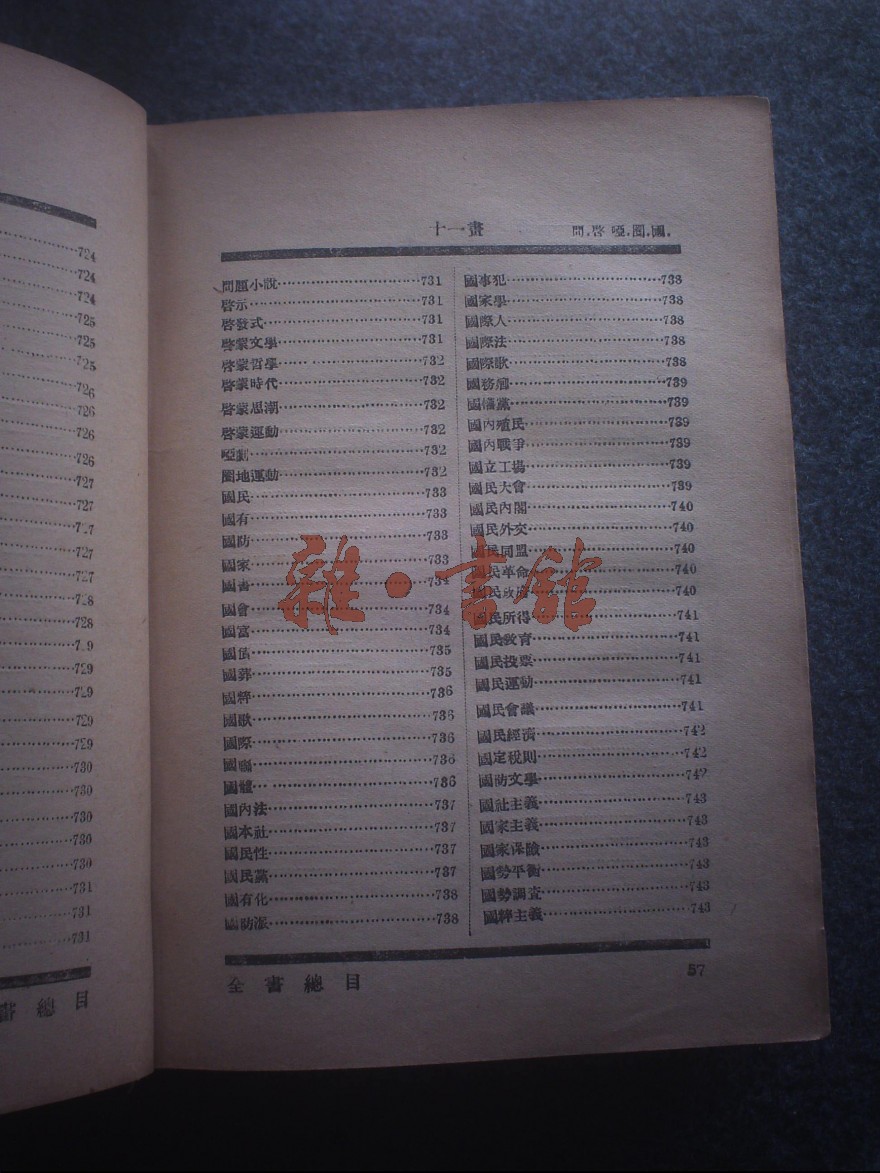 724
724
724
725
725
725
726
726
726
726
727
727
727
727
727
728
728
729
729
729
729
729
730
730
730
730
730
731
731
731
目總
十一畫
問．啓．啞．圈．國．
問題小說 731
啓示 731
啓發式 731
啓蒙文學 731
啓蒙哲學 732
啓蒙時代 732
啓蒙思潮 732
啓蒙運動 732
啞劇 732
圈地運動 732
國民 733
國有 733
國防 733
國家 733
國書 734
國會 734
國富 734
國債 735
國葬 735
國粹 736
國歌 736
國際 736
國聯 736
國體 736
國內法 737
國本社 737
國民性 737
國民黨 737
國有化 738
國防派 738
國事犯 738
國家學 738
國際人 738
國際法 738
國際歌 738
國務卿 739
國權黨 739
國內殖民 739
國內戰爭 739
國立工場 739
國民大會 739
國民內閣 740
國民外交 740
國民同盟 740
國民革命 740
國民政府 740
國民所得 741
國民敎育 741
國民投票 741
國民運動 741
國民會議 741
國民經濟 742
國定稅則 742
國防文學 742
國社主義 743
國家主義 743
國家保險 743
國勢平衡 743
國勢調查 743
國粹主義 743
雜·書館
全書總目
57